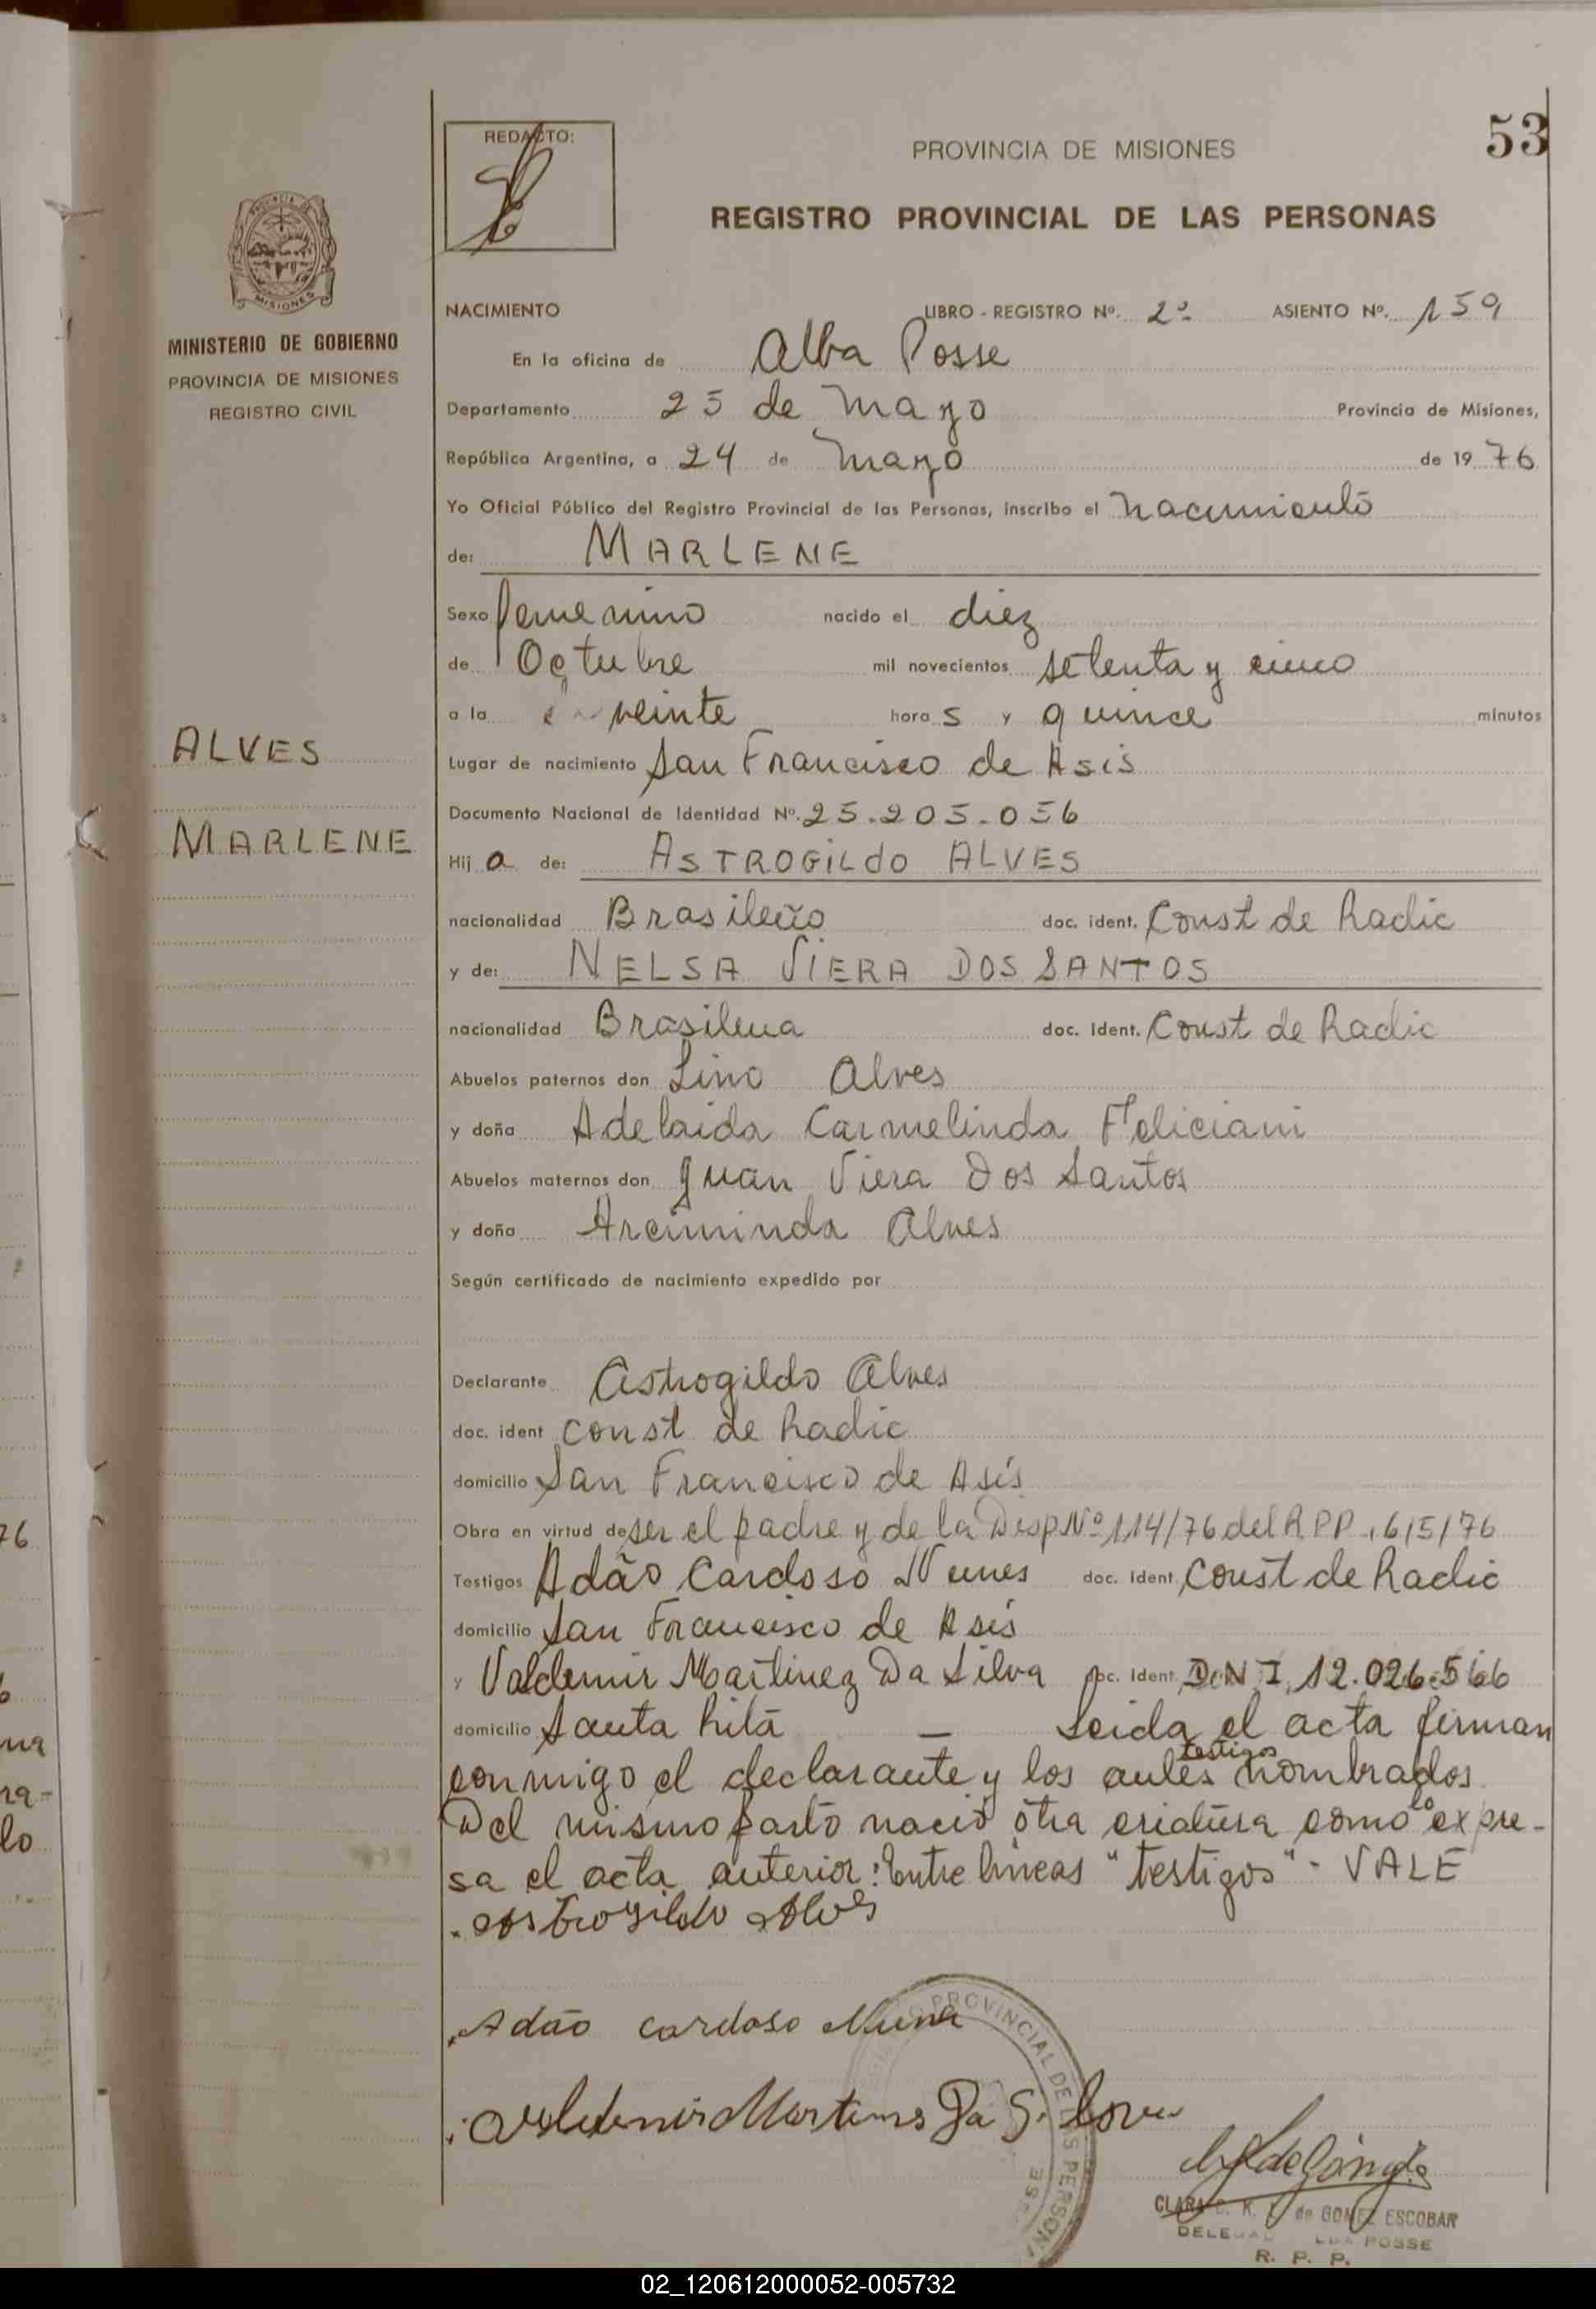 53
REDACTO:
PROVINCIA DE MISIONES
REGISTRO PROVINCIAL DE LAS PERSONAS
MISIONES
MINISTERIO DE GOBIERNO
PROVINCIA DE MISIONES
REGISTRO CIVIL
ALVES
MARLENE
NACIMIENTO LIBRO - REGISTRO Nº. 2º ASIENTO Nº. 159
En la oficina de Alba Posse
Departamento 25 de Mayo Provincia de Misiones,
República Argentina, a 24 de Mayo de 1976
Yo Oficial Público del Registro Provincial de las Personas, inscribo el nacimiento
de: MARLENE
Sexo femenino nacido el diez
de Octubre mil novecientos setenta y cinco
a la veinte hora s y quince minutos
Lugar de nacimiento San Francisco de Asis
Documento Nacional de Identidad Nº. 25.205.056
Hij a de: ASTROGILDO ALVES
nacionalidad Brasileño doc. ident. Const de Radic
y de: NELSA VIERA DOS SANTOS
nacionalidad Brasilena doc. Ident. Const de Radic
Abuelos paternos don Lino Alves
y doña Adelaida Carmelinda Feliciani
Abuelos maternos don Juan Viera Dos Santos
y doña Arciminda Alves
Según certificado de nacimiento expedido por
Declarante Astrogildo Alves
doc. ident const de Radic
domicilio San Francisco de Asís
Obra en virtud de ser el padre y de la Disp Nº 114/76 del RPP, 6/5/76
Testigos Adão Cardoso Nunes doc. ident Const de Radic
domicilio San Francisco de Asís
y Valdemir Martinez Da Silva doc. Ident. D.N.I. 12.026.566
domicilio Santa Rita — Leida el acta firman
conmigo el declarante y los testigos antes nombrados
Del mismo parto nació otra criatura como lo expre-
sa el acta anterior: Entre líneas "testigos" - VALE
Astrogildo Alves
Adão cardoso
Martins Da
PROVINCIAL DE LAS PERSONAS
CLARA C. K. de GOMEZ ESCOBAR
POSSE
R. P. P.
02_120612000052-005732